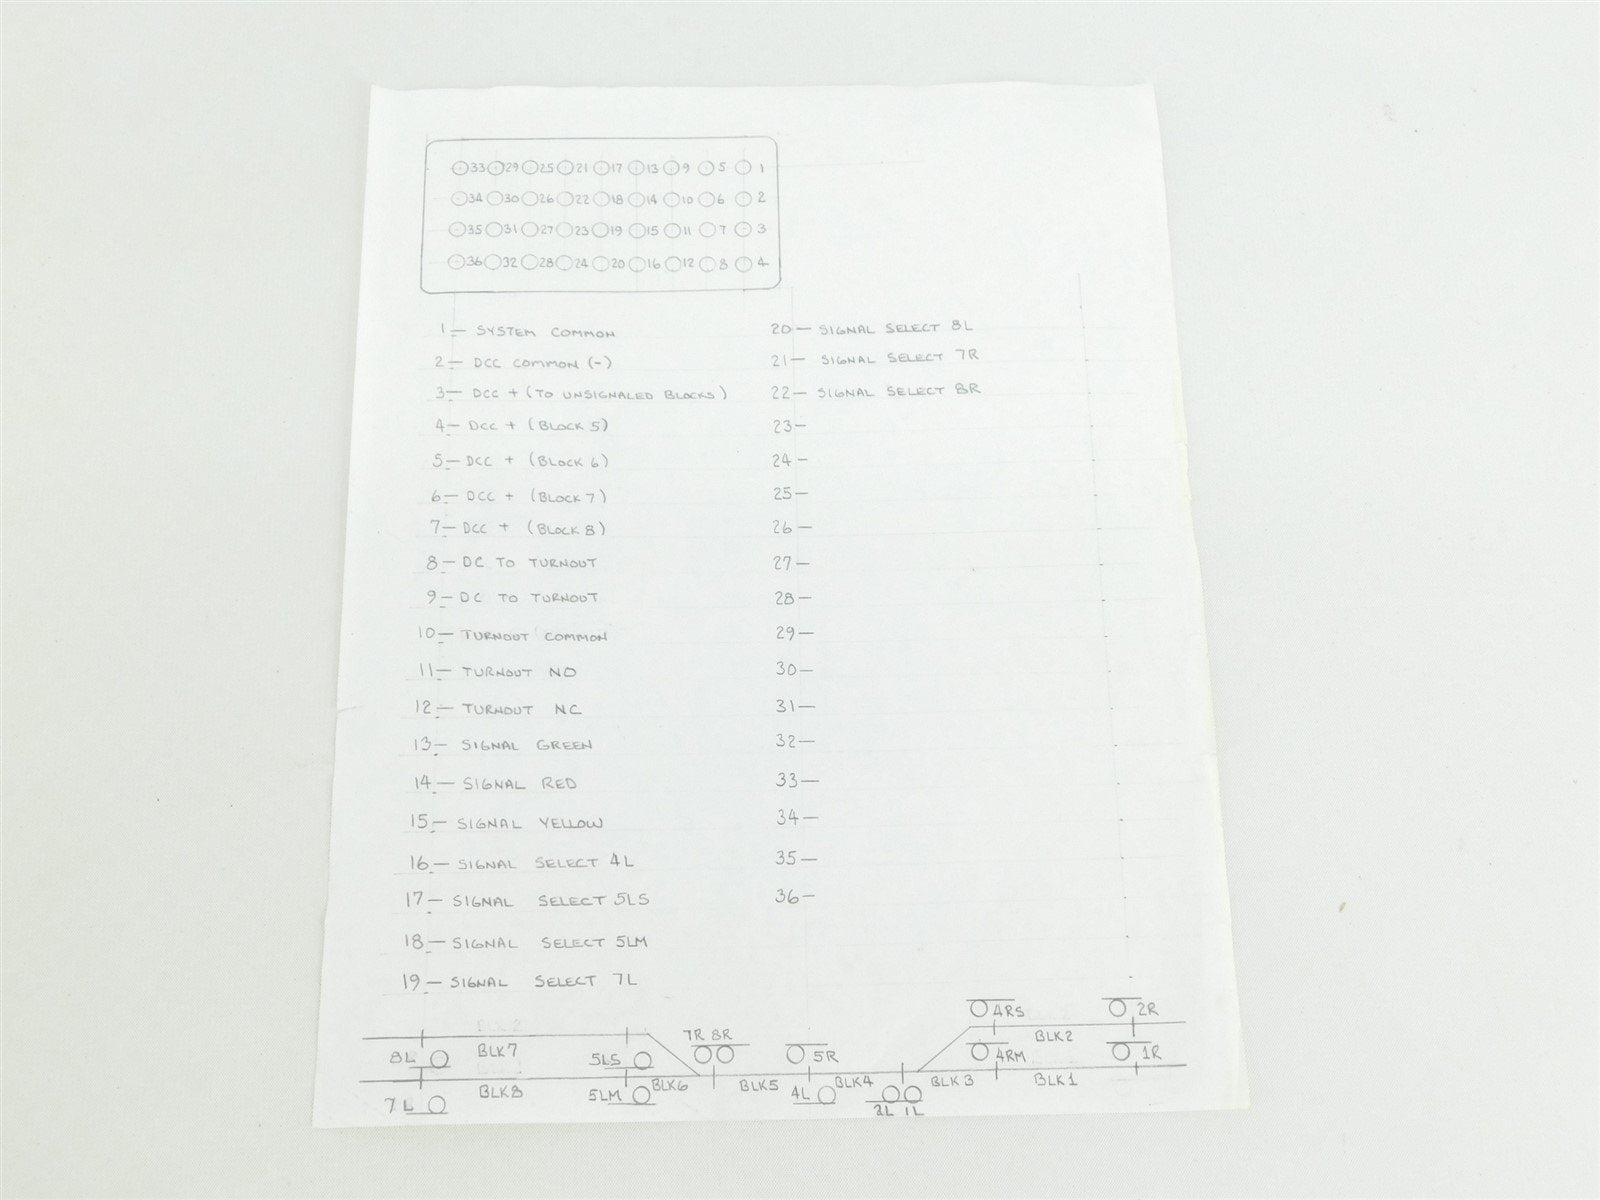 33 29 25 21 17 13 9 5 1
34 30 26 22 18 14 10 6 2
35 31 27 23 19 15 11 7 3
36 32 28 24 20 16 12 8 4
1 — SYSTEM COMMON
2 — DCC COMMON (-)
3 — DCC + (TO UNSIGNALED BLOCKS)
4 — DCC + (BLOCK 5)
5 — DCC + (BLOCK 6)
6 — DCC + (BLOCK 7)
7 — DCC + (BLOCK 8)
8 — DC TO TURNOUT
9 — DC TO TURNOUT
10 — TURNOUT COMMON
11 — TURNOUT NO
12 — TURNOUT NC
13 — SIGNAL GREEN
14 — SIGNAL RED
15 — SIGNAL YELLOW
16 — SIGNAL SELECT 4L
17 — SIGNAL SELECT 5LS
18 — SIGNAL SELECT 5LM
19 — SIGNAL SELECT 7L
20 — SIGNAL SELECT 8L
21 — SIGNAL SELECT 7R
22 — SIGNAL SELECT 8R
23 —
24 —
25 —
26 —
27 —
28 —
29 —
30 —
31 —
32 —
33 —
34 —
35 —
36 —
4RS 2R
7R 8R BLK2
8L BLK7 5LS 5R 4RM 1R
BLK8 BLK6 BLK5 BLK4 BLK3 BLK1
7L 5LM 4L
2L 1L